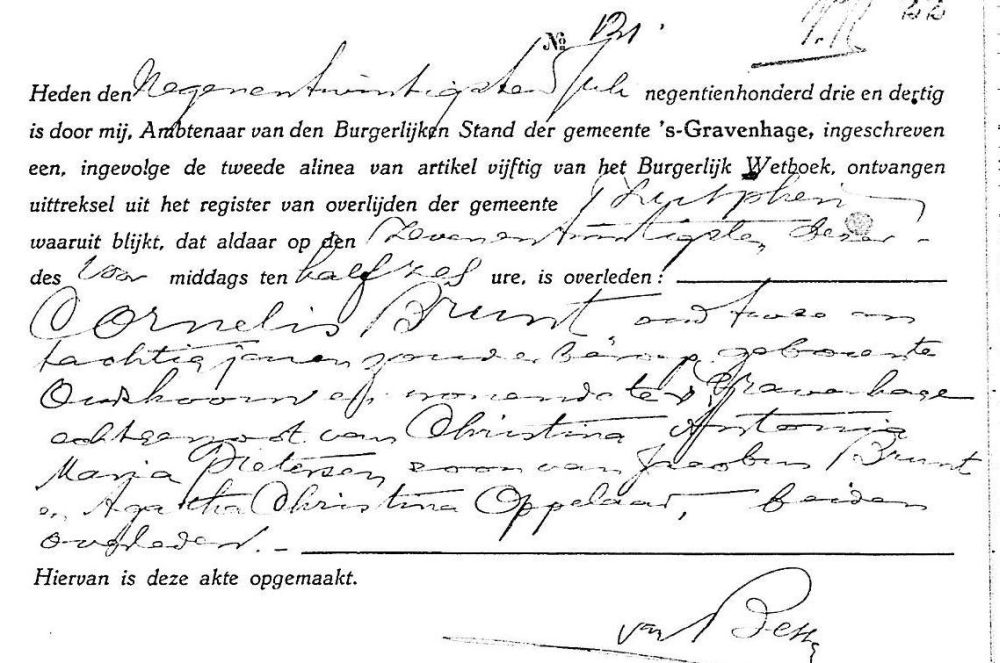 No
Heden den Negenentwintigsten Juli negentienhonderd drie en dertig
is door mij, Ambtenaar van den Burgerlijken Stand der gemeente 's-Gravenhage, ingeschreven
een, ingevolge de tweede alinea van artikel vijftig van het Burgerlijk Wetboek, ontvangen
uittreksel uit het register van overlijden der gemeente Zutphen
waaruit blijkt, dat aldaar op den Zevenentwintigsten dezer
des voor middags ten half zes ure, is overleden:
Cornelis Brunt, oud twee en
tachtig jaren zonder beroep, geboren te
Oudshoorn en wonende te 's Gravenhage
echtgenoot van Christina Antonia
Maria Pietersen zoon van Jacobus Brunt
en Agatha Christina Oppelaar, beiden
overleden.
Hiervan is deze akte opgemaakt.
van